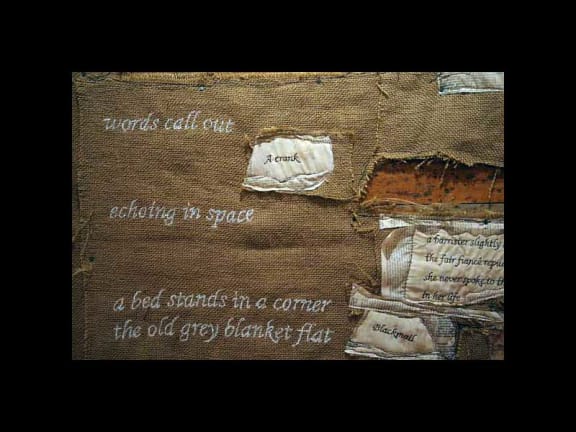 words call out
A crank
echoing in space
a barrister slightly
the fair fiancé
she never spoke to
in her life
a bed stands in a corner
the old grey blanket flat
Blackmail